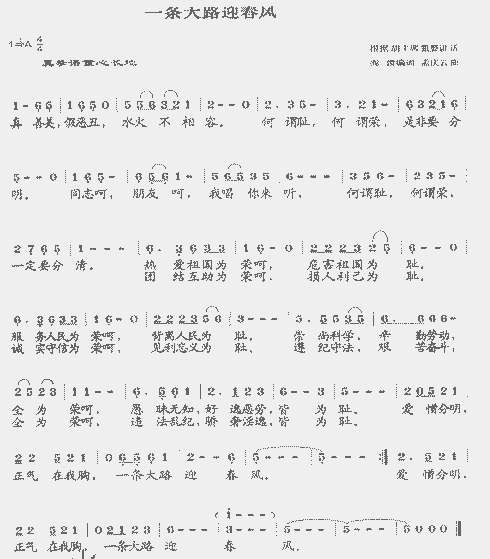 一条大路迎春风
1=A 4/4
根据胡主席重要讲话
真挚语重心长地
1-65 | 1650 | 556321 | 2--0 | 2.35- | 3.21- | 63216
真善美,假恶丑,水火不相容。何谓耻,何谓荣,是非要分
5--0 | 165- | 6561- | 56535 | 6--- | 356- | 235-
明。同志呵,朋友呵,我唱你来听,何谓耻,何谓荣,
2765 | 1--- | 6.3633 | 16-0 | 222325 | 6--0
一定要分清。热爱祖国为荣呵,危害祖国为耻。
团结互助为荣呵,损人利己为耻。
6.3633 | 16-0 | 2223356 | 3--- | 5.5535 | 6.666-
服务人民为荣呵,背离人民为耻。崇尚科学,辛勤劳动,
诚实守信为荣呵,见利忘义为耻。遵纪守法,艰苦奋斗,
2523 | 11-- | 6.561 | 2.123 | 6--3 | 5--- | 20521
全为荣呵,愚昧无知,好逸恶劳,皆为耻。爱憎分明,
全为荣呵,违法乱纪,骄奢淫逸,皆为耻。
22 521 | 06561 | 2--6 | 5--- | 5--- :|| 2.521
正气在我胸,一条大路迎春风。爱憎分明,
(i---)
22 521 | 02123 | 6--- | 3--- | 5--- | 5--- | 5000 ||
正气在我胸,一条大路迎春风。